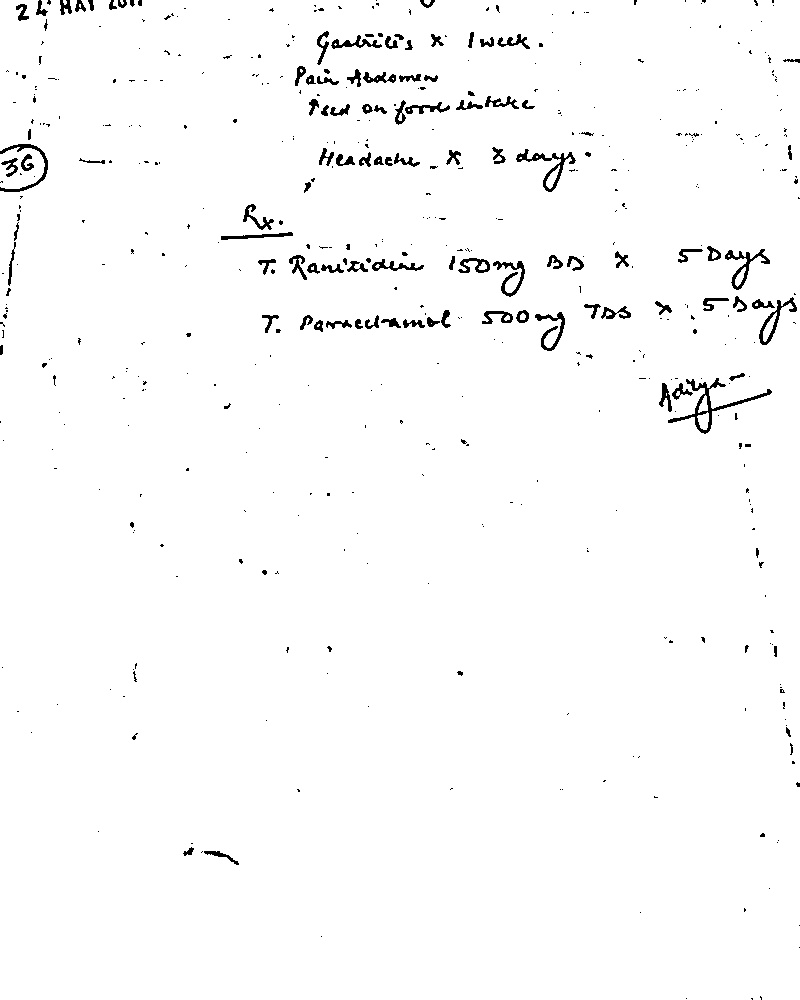 24 MAY 201
Gastritis x 1 week.
Pain Abdomen
↑sed on food intake
36
Headache x 3 days.
Rx.
T. Ranitidine 150mg BD x 5 Days
T. Paracetamol 500mg TDS x 5 Days
Aditya